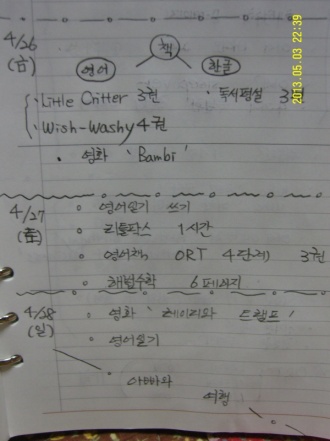 2013.05.03 22:39
4/26
(금)
책
영어
한글
· Little Critter 3권
· 독서평설 3
· Wish-Washy 4권
· 영화 'Bambi'
4/27
(토)
영어일기 쓰기
리틀팍스 1시간
영어책 ORT 4단계 3권
해법수학 6페이지
4/28
(일)
영화 '레이디와 트램프'
영어일기
아빠와
여행